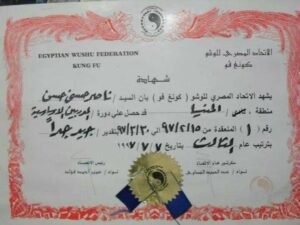 EGYPTIAN WUSHU FEDERATION
KUNG FU
الاتحاد المصرى للوشو
كونغ فو
شهادة
يشهد الاتحاد المصرى للوشو ( كونغ فو ) بان السيد / ناصر حسنى حسن
منطقة / المنيا قد حصل على دورة /
رقم ( ١ ) المنعقدة من ٩٧/٢/١٥ الى ٩٧/٣/٢٠ بتقدير / جيد جداً
بترتيب عام الثالث بتاريخ ١٩٩٧/٧/٧
سكرتير عام الاتحاد
رئيس الاتحاد
لواء / عبد الحميد
لواء /